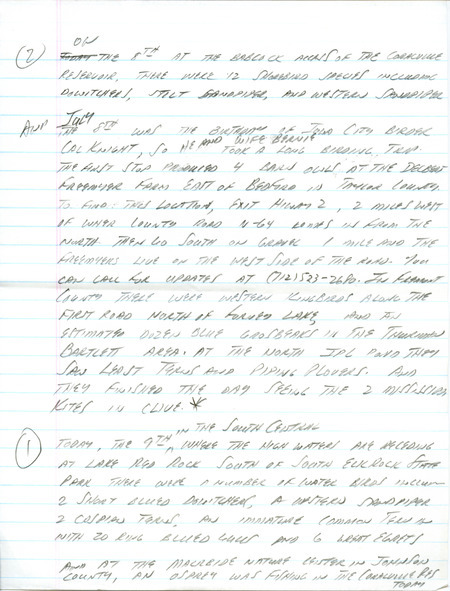 ON
(2) THE 8TH AT THE BABCOCK ACCESS OF THE CORALVILLE
RESERVOIR, THERE WERE 12 SHOREBIRD SPECIES INCLUDING
DOWITCHERS, STILT SANDPIPER, AND WESTERN SANDPIPER
AND JULY
THE 8TH WAS THE BIRTHDAY OF IOWA CITY BIRDER
CAL KNIGHT, SO HE AND WIFE BERNIE TOOK A LONG BIRDING TRIP.
THE FIRST STOP PRODUCED 4 BARN OWLS AT THE DELBERT
FREEMYER FARM EAST OF BEDFORD IN TAYLOR COUNTY.
TO FIND THIS LOCATION, EXIT HIWAY 2, 2 MILES WEST
OF WHERE COUNTY ROAD N-64 COMES IN FROM THE
NORTH. THEN GO SOUTH ON GRAVEL 1 MILE AND THE
FREEMYERS LIVE ON THE WEST SIDE OF THE ROAD. YOU
CAN CALL FOR UPDATES AT (712) 523-2690. IN FREMONT
COUNTY THERE WERE WESTERN KINGBIRDS ALONG THE
FIRST ROAD NORTH OF FORNEY LAKE, AND AN
ESTIMATED DOZEN BLUE GROSBEAKS IN THE THURMAN
BARTLETT AREA. AT THE NORTH IPL POND THEY
SAW LEAST TERNS AND PIPING PLOVERS. AND
THEY FINISHED THE DAY SEEING THE 2 MISSISSIPPI
KITES IN CLIVE. *
IN THE SOUTH CENTRAL
(1) TODAY, THE 9TH, WHERE THE HIGH WATERS ARE RECEDING
AT LAKE RED ROCK SOUTH OF SOUTH ELK ROCK STATE
PARK THERE WERE A NUMBER OF WATER BIRDS
2 SHORT BILLED DOWITCHERS, A WESTERN SANDPIPER
2 CASPIAN TERNS, AN IMMATURE COMMON TERN
WITH 20 RING BILLED GULLS AND 6 GREAT EGRETS
AND AT THE MACBRIDE NATURE CENTER IN JOHNSON
COUNTY, AN OSPREY WAS FISHING IN THE CORALVILLE RES
TODAY